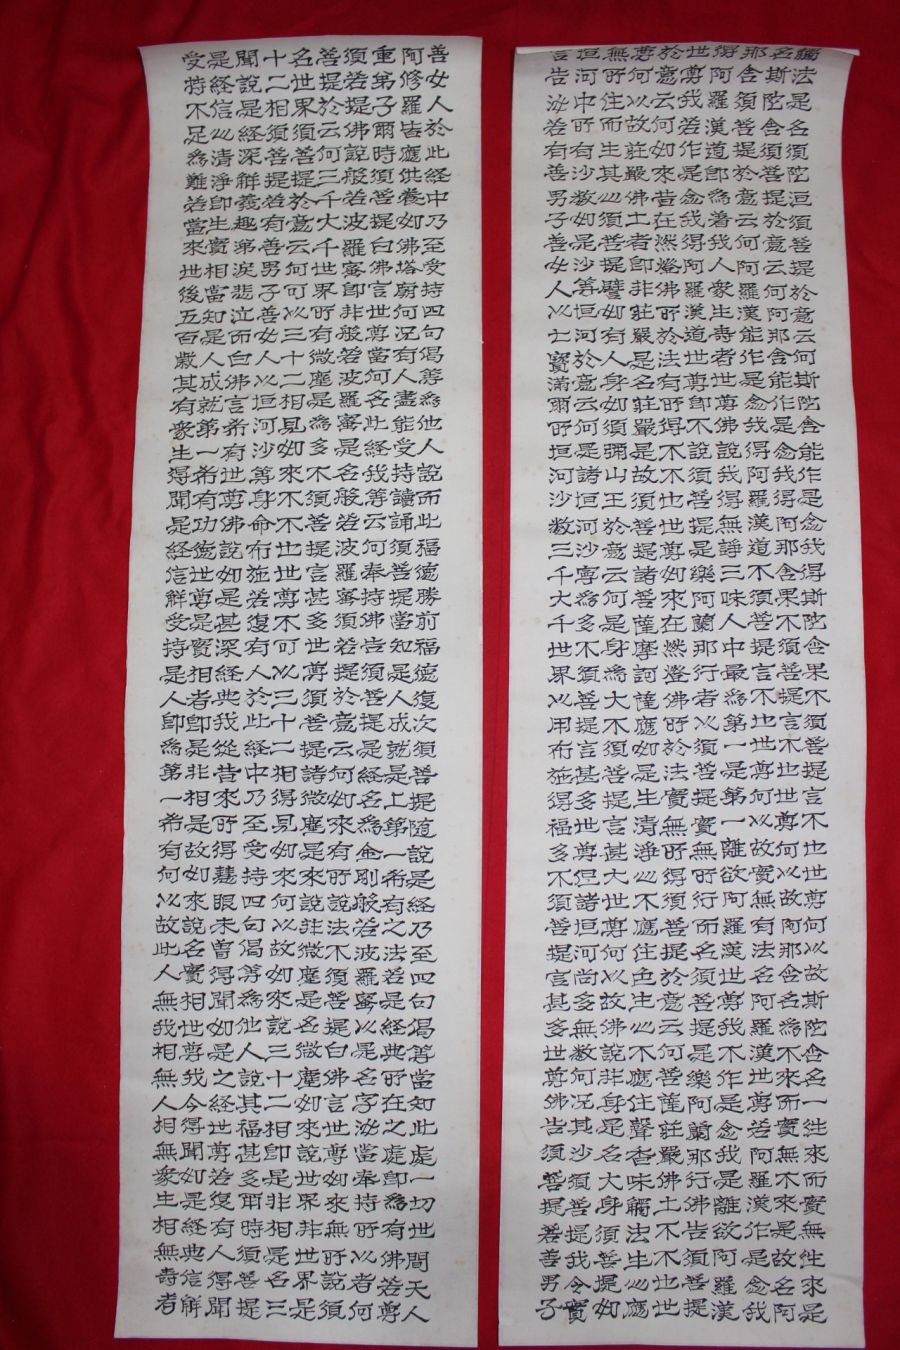 觸法是名須陀洹須菩提於意云何斯陀含能作是念我得斯陀含果不須菩提言不也世尊何以故斯陀含名一往來而實無往來是
名斯陀含須菩提於意云何阿那含能作是念我得阿那含果不須菩提言不也世尊何以故阿那含名為不來而實無不來是故名阿
那含須菩提於意云何阿羅漢能作是念我得阿羅漢道不須菩提言不也世尊何以故實無有法名阿羅漢世尊若阿羅漢作是念我
得阿羅漢道即着我人眾生壽者世尊佛說我得無諍三昧人中最為第一是第一離欲阿羅漢世尊我不作是念我是離欲阿羅漢
世尊我若作是念我得阿羅漢道世尊即不說須菩提是樂阿蘭那行者以須菩提實無所行而名須菩提是樂阿蘭那行佛告須菩提
於意云何如來昔在然燈佛所於法有所得不不也世尊如來在然燈佛所於法實無所得須菩提於意云何菩薩莊嚴佛土不不也世
尊何以故莊嚴佛土者即非莊嚴是名莊嚴是故須菩提諸菩薩摩訶薩應如是生清淨心不應住色生心不應住聲香味觸法生心應
無所住而生其心須菩提譬如有人身如須彌山王於意云何是身為大不須菩提言甚大世尊何以故佛說非身是名大身須菩提如
恒河中所有沙數如是沙等恒河於意云何是諸恒河沙寧為多不須菩提言甚多世尊但諸恒河尚多無數何況其沙須菩提我今實
言告汝若有善男子善女人以七寶滿爾所恒河沙數三千大千世界以用布施得福多不須菩提言甚多世尊佛告須菩提若善男子
善女人於此經中乃至受持四句偈等為他人說而此福德勝前福德復次須菩提隨說是經乃至四句偈等當知此處一切世間天人
阿修羅皆應供養如佛塔廟何況有人盡能受持讀誦須菩提當知是人成就最上第一希有之法若是經典所在之處即為有佛若尊
重弟子爾時須菩提白佛言世尊當何名此經我等云何奉持佛告須菩提是經名為金剛般若波羅蜜以是名字汝當奉持所以者何
須菩提佛說般若波羅蜜即非般若波羅蜜是名般若波羅蜜須菩提於意云何如來有所說法不須菩提白佛言世尊如來無所說須
菩提於意云何三千大千世界所有微塵是為多不須菩提言甚多世尊須菩提諸微塵如來說非微塵是名微塵如來說世界非世界是
名世界須菩提於意云何可以三十二相見如來不不也世尊不可以三十二相得見如來何以故如來說三十二相即是非相是名三
十二相須菩提若有善男子善女人以恒河沙等身命布施若復有人於此經中乃至受持四句偈等為他人說其福甚多爾時須菩提
聞說是經深解義趣涕淚悲泣而白佛言希有世尊佛說如是甚深經典我從昔來所得慧眼未曾得聞如是之經世尊若復有人得聞
是経信心清淨即生實相當知是人成就第一希有功德世尊是實相者即是非相是故如來說名實相世尊我今得聞如是経典信解
受持不足為難若當來世後五百歲其有眾生得聞是経信解受持是人即為第一希有何以故此人無我相無人相無眾生相無壽者